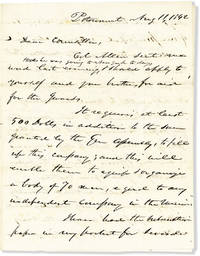 Pawtucket Aug 11, 1862
Dear
Col. Allen sent
that he was going to
last evening, I should apply to
yourself and your brother, for aid
for the Guards.
It requires at least
500 Dolls, in addition to the sum
granted by the Gen Assembly, to fill
up this company; and this will
enable them to equip & organize
a body of 70 men, equal to any
independent company in the Union.
I have had the subscription
paper in my pocket for several